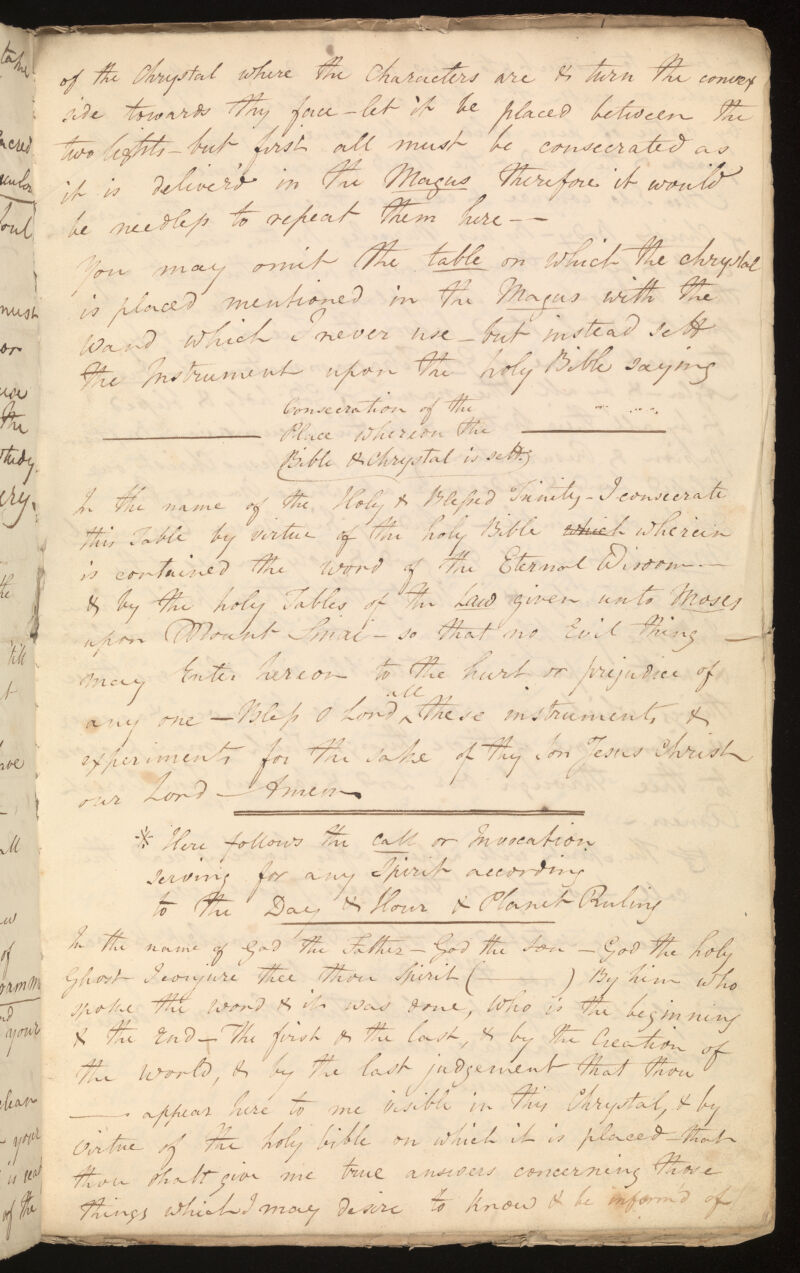 of the Chrystal where the Characters are & turn the convex
side towards thy face - let it be placed between the
two lights - but first all must be consecrated as
it is deliver'd in the Magus therefore it would
be needless to repeat them here - -
You may omit the table on which the chrystal
is placed mentioned in the Magus with the
wand which I never use - but instead sett
the Instrument upon the holy Bible saying
Consecration of the
Place whereon the
(Bible & Chrystal is sett)
In the name of the Holy & Blessed Trinity - I consecrate
this Table by virtue of the holy Bible which wherein
is contained the word of the Eternal Wisdom -
& by the holy Tables of the Law given unto Moses
upon Mount Sinai - so that no Evil thing
may Enter hereon to the hurt or prejudice of
any one - Bless O Lord all these instruments &
experiments for the sake of thy Son Jesus Christ
our Lord - Amen
* Here follows the call or Invocation
serving for any Spirit according
to the Day & Hour & Planet Ruling
In the name of God the Father - God the Son - God the holy
Ghost I conjure thee thou Spirit ( ——— ) By him who
spoke the word & it was done, who is the beginning
& the End - The first & the last, & by the Creation of
the world, & by the last judgement that thou
—— appear here to me visible in this Chrystal, & by
virtue of the holy bible on which it is placed - that
thou shalt give me true answers concerning those
things which I may desire to know & be inform'd of